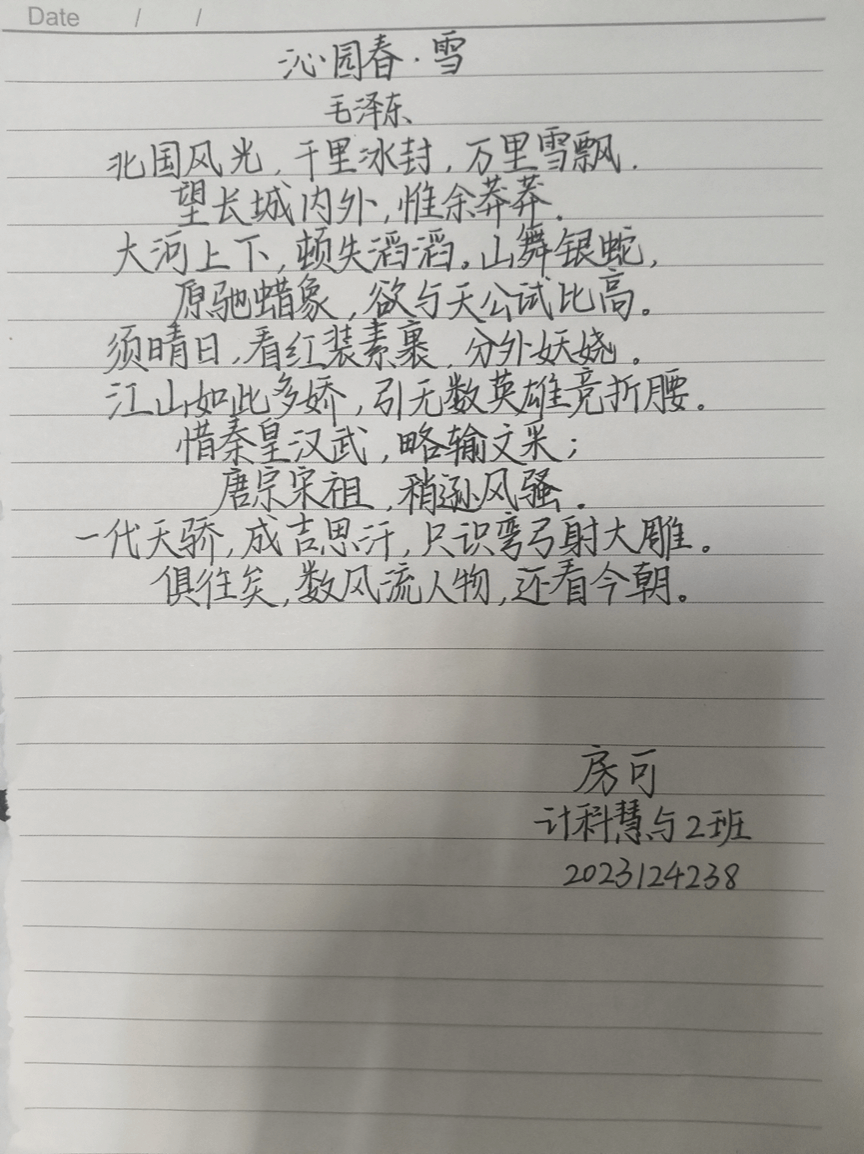 Date / /
沁园春·雪
毛泽东
北国风光,千里冰封,万里雪飘.
望长城内外,惟余莽莽.
大河上下,顿失滔滔。山舞银蛇,
原驰蜡象,欲与天公试比高。
须晴日,看红装素裹,分外妖娆。
江山如此多娇,引无数英雄竞折腰。
惜秦皇汉武,略输文采;
唐宗宋祖,稍逊风骚.
一代天骄,成吉思汗,只识弯弓射大雕。
俱往矣,数风流人物,还看今朝。
房可
计科慧与2班
2023124238